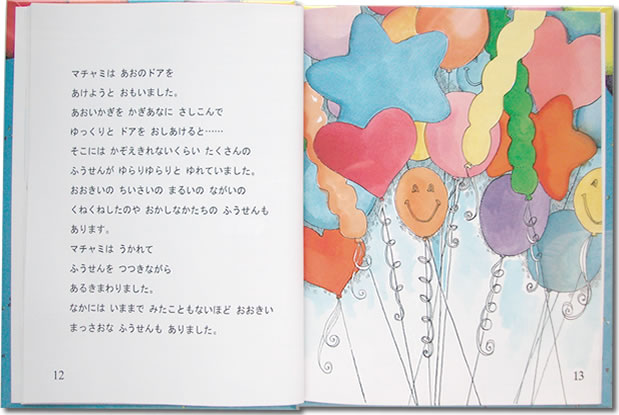 マチャミは あおのドアを
あけようと おもいました。
あおいかぎを かぎあなに さしこんで
ゆっくりと ドアを おしあけると……
そこには かぞえきれないくらい たくさんの
ふうせんが ゆらりゆらりと ゆれていました。
おおきいの ちいさいの まるいの ながいの
くねくねしたのや おかしなかたちの ふうせんも
あります。
マチャミは うかれて
ふうせんを つつきながら
あるきまわりました。
なかには いままで みたこともないほど おおきい
まっさおな ふうせんも ありました。
12
13